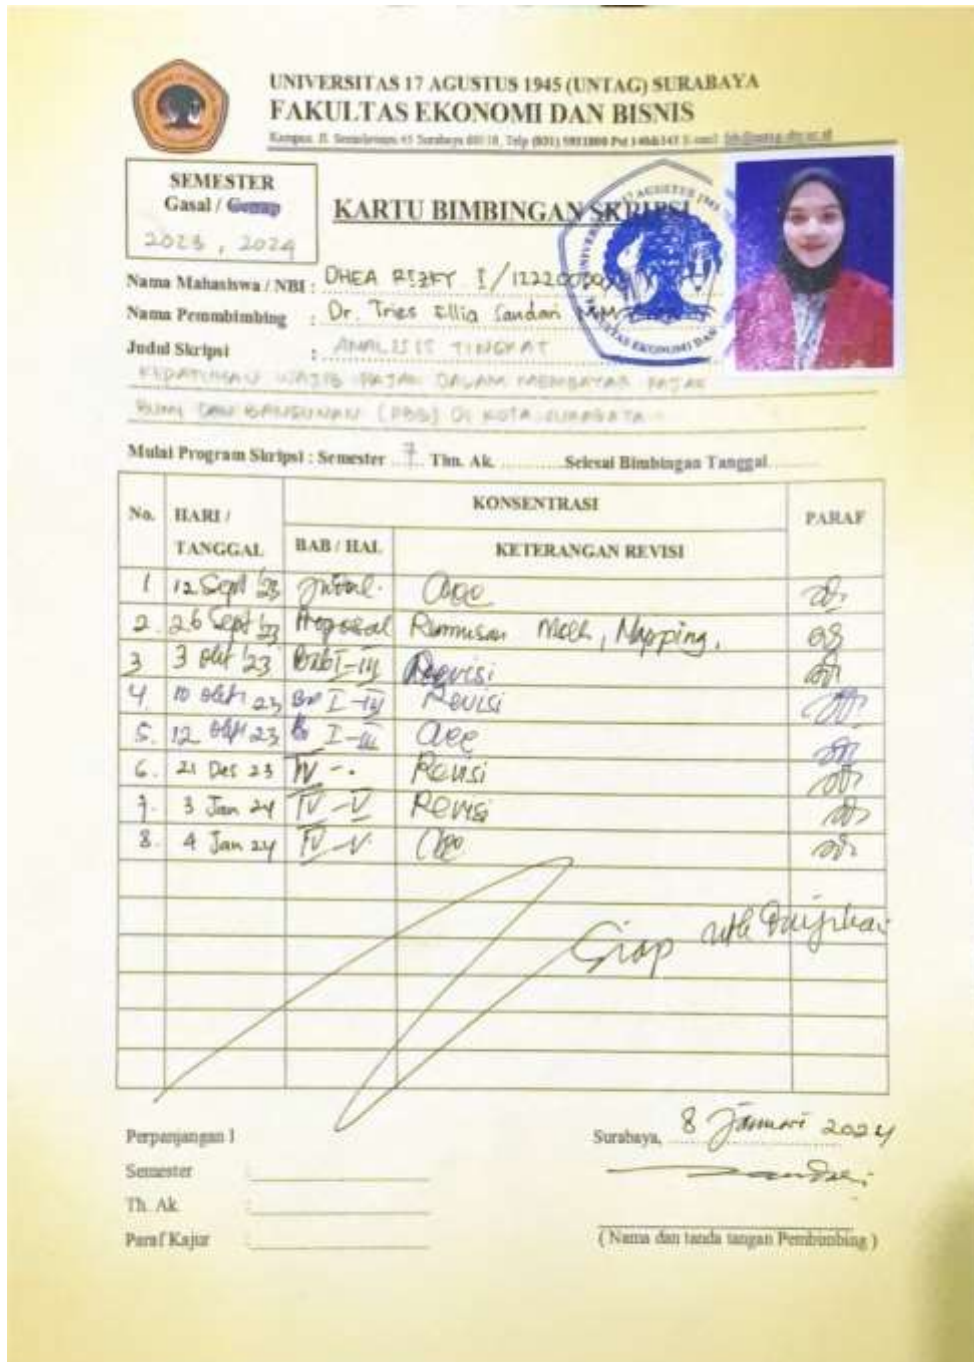 UNIVERSITAS 17 AGUSTUS 1945 (UNTAG) SURABAYA
FAKULTAS EKONOMI DAN BISNIS
Kampus. Jl. Semolowaru 45 Surabaya 60118, Telp (031) 5931800
SEMESTER
Gasal / Genap
2023, 2024
KARTU BIMBINGAN SKRIPSI
Nama Mahasiswa / NBI : DHEA RIZKY I / 12220000
Nama Pemmbimbing : Dr. Tries Ellia Sandari MM
Judul Skripsi : ANALISIS TINGKAT
KEPATUHAN WAJIB PAJAK DALAM MEMBAYAR PAJAK
BUMI DAN BANGUNAN (PBB) DI KOTA SURABAYA
Mulai Program Skripsi : Semester 7 Thn. Ak. Selesai Bimbingan Tanggal
No. HARI / TANGGAL KONSENTRASI PARAF
BAB / HAL KETERANGAN REVISI
1 12 Sept '23 Judul. Acc
2. 26 Sept '23 Proposal Rumusan Mslh, Mapping.
3 3 Okt '23 Bab I-III Revisi
4 10 Okt 23 I-III Revisi
5. 12 Okt 23 I-III acc
6. 21 Des 23 IV -. Revisi
7. 3 Jan 24 IV-V Revisi
8. 4 Jan 24 IV-V. Acc
Siap utk Diujikan
Perpanjangan I
Surabaya, 8 Januari 2024
Semester :
Th. Ak :
Paraf Kajur :
( Nama dan tanda tangan Pembimbing )